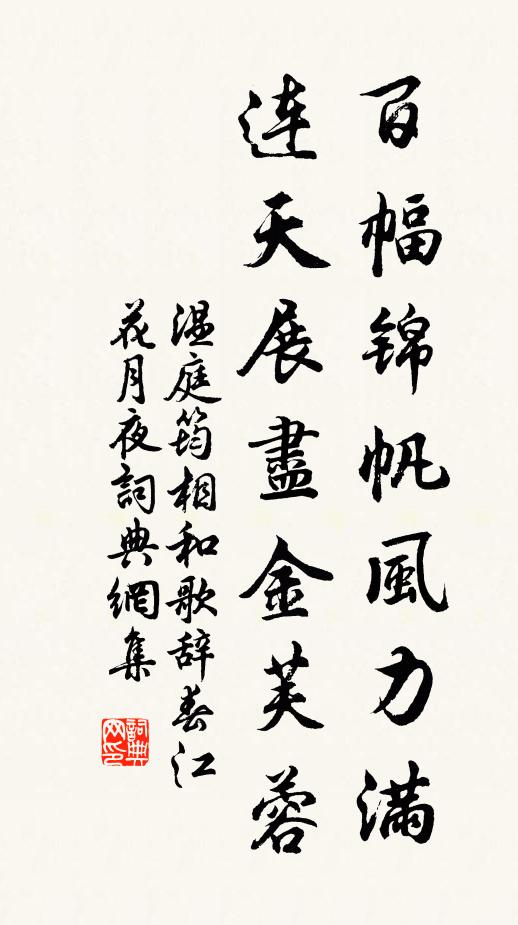 百幅锦帆風力满
連天展盡金芙蓉
温庭筠相和歌辞春江
花月夜詞典網集
詞典网印